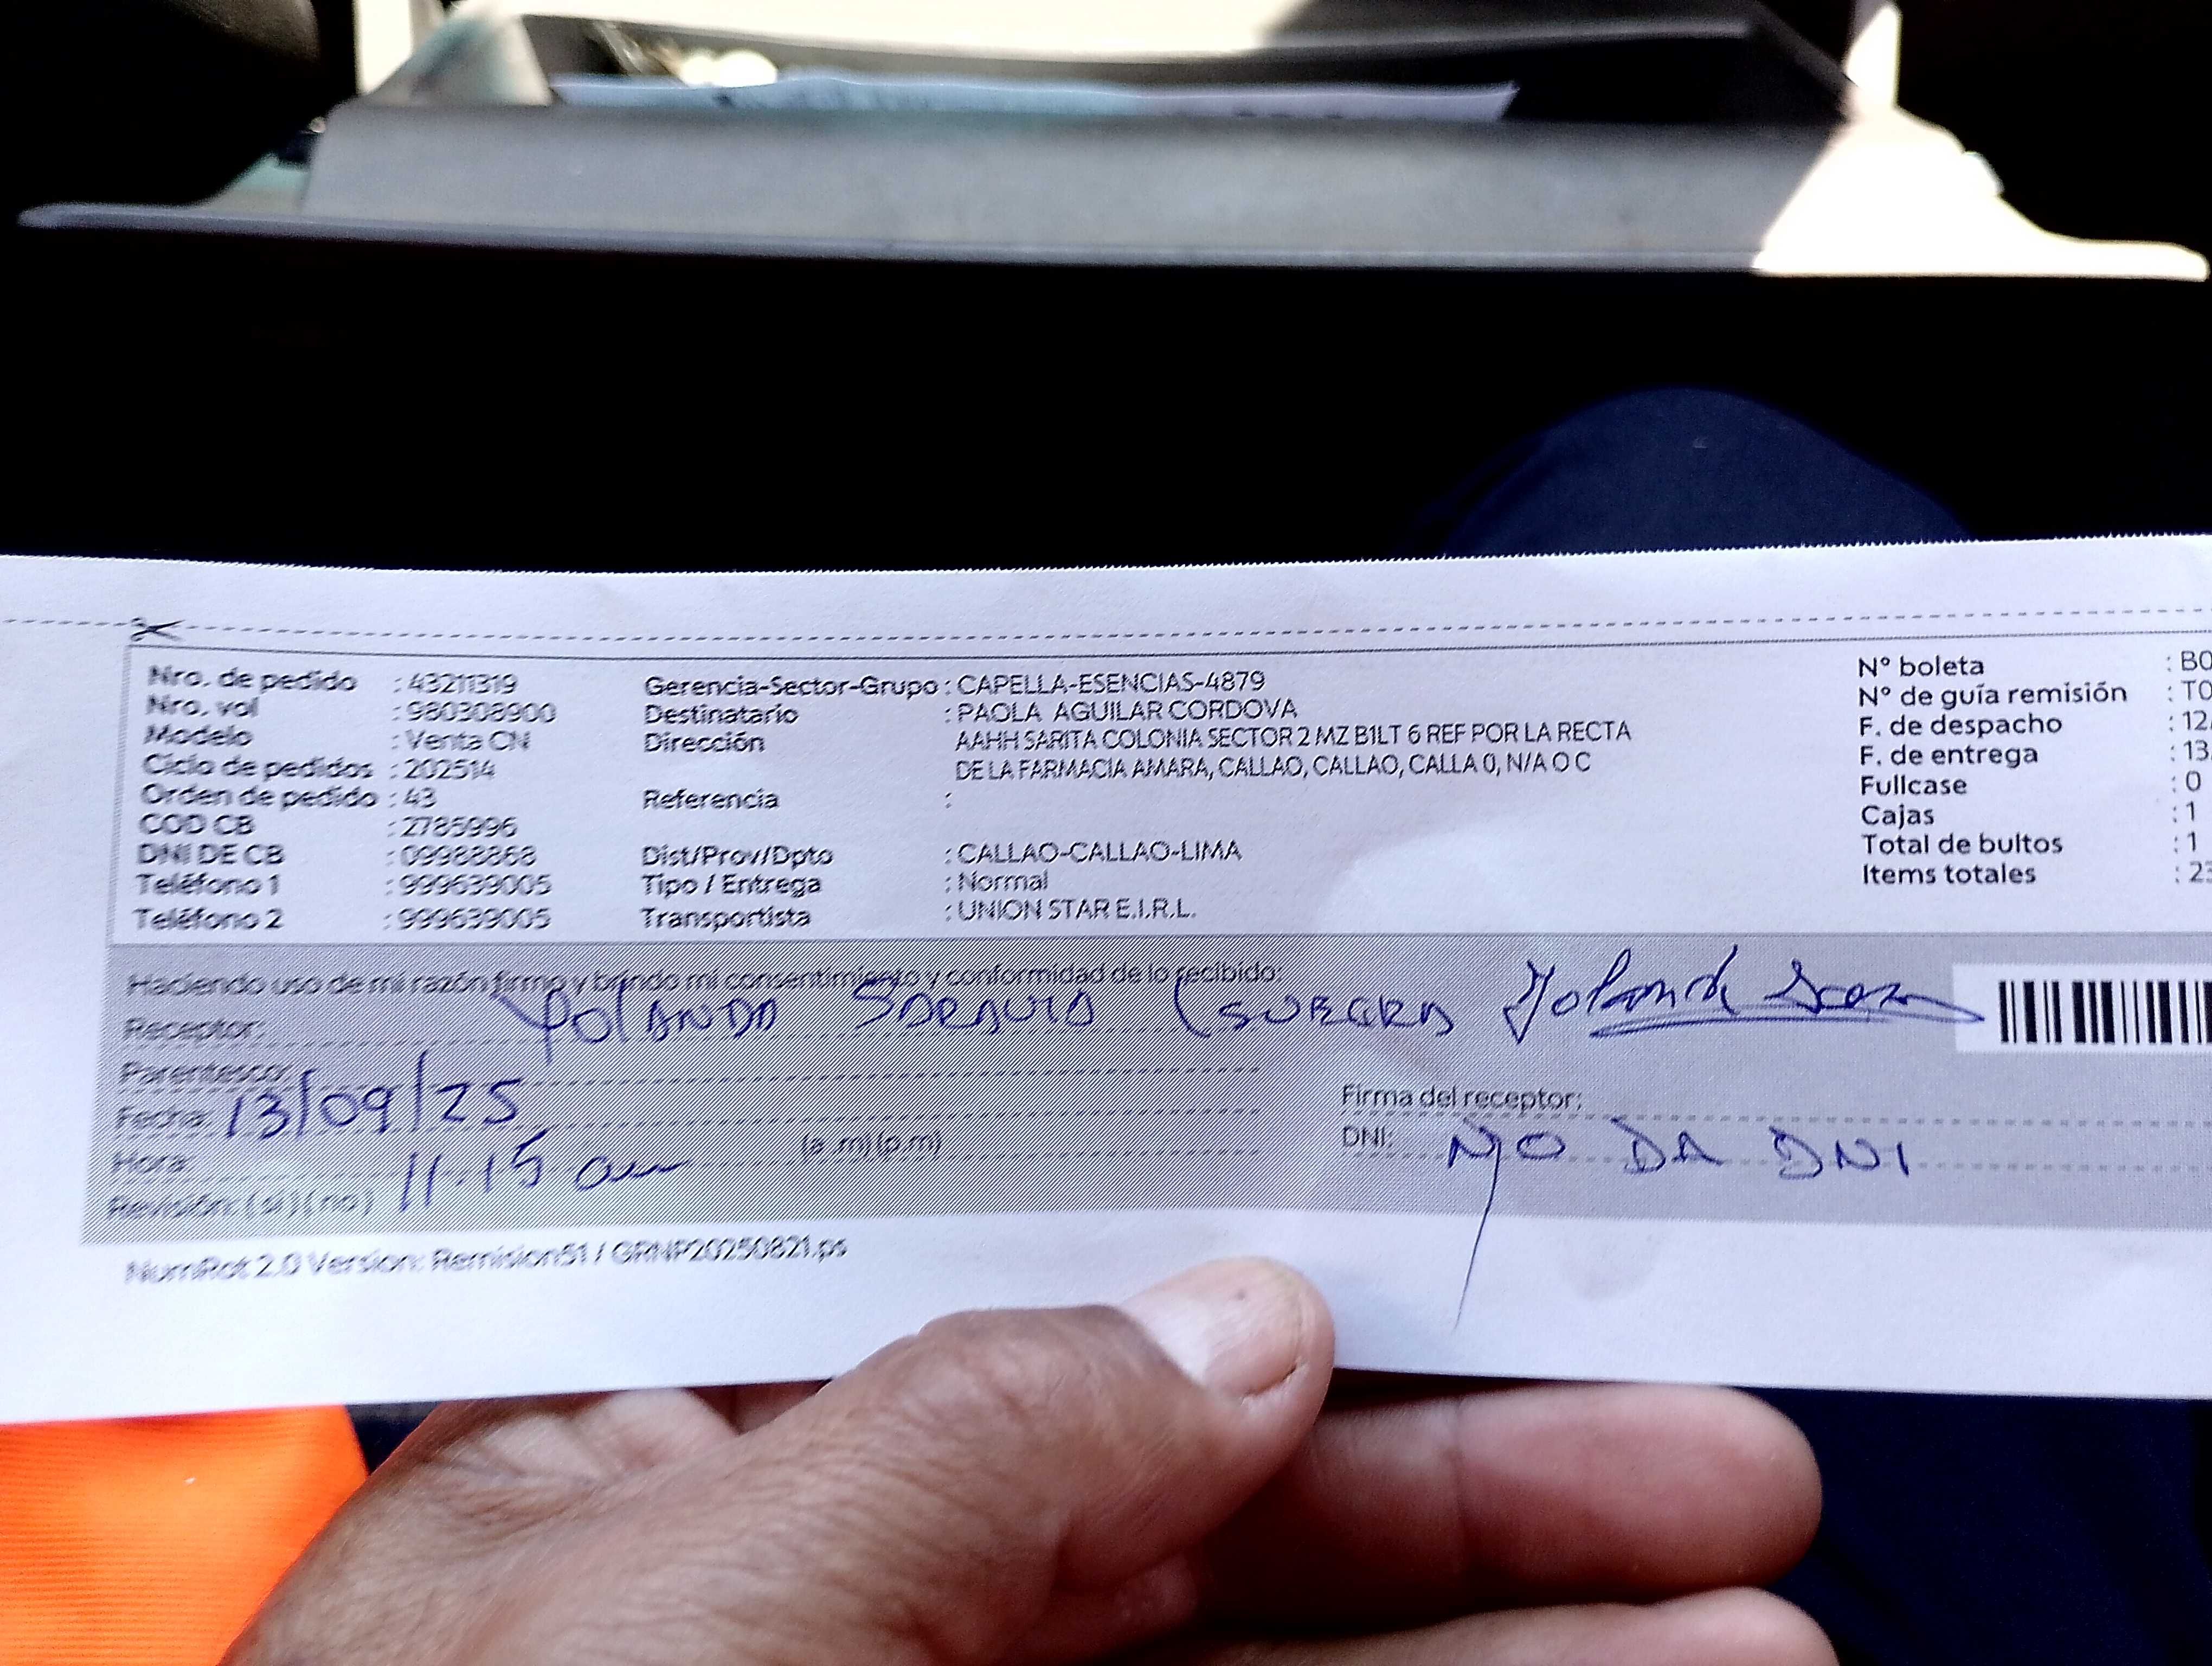 Nro. de pedido : 43211319
Nro. vol : 980308900
Modelo : Venta CN
Ciclo de pedidos : 202514
Orden de pedido : 43
COD CB : 2785996
DNI DE CB : 09988868
Teléfono 1 : 999639005
Teléfono 2 : 999639005
Gerencia-Sector-Grupo : CAPELLA-ESENCIAS-4879
Destinatario : PAOLA AGUILAR CORDOVA
Dirección : AAHH SARITA COLONIA SECTOR 2 MZ B1LT 6 REF POR LA RECTA
DE LA FARMACIA AMARA, CALLAO, CALLAO, CALLA 0, N/A O C
Referencia :
Dist/Prov/Dpto : CALLAO-CALLAO-LIMA
Tipo / Entrega : Normal
Transportista : UNION STAR E.I.R.L.
N° boleta : B0
N° de guía remisión : T0
F. de despacho : 12
F. de entrega : 13
Fullcase : 0
Cajas : 1
Total de bultos : 1
Items totales : 23
Haciendo uso de mi razón firmo y brindo mi consentimiento y conformidad de lo recibido:
Receptor: YOLANDA (SUEGRA Yolanda
Parentesco:
Fecha: 13/09/25
Hora: 11:15 am (a.m) (p.m)
Revisión: (si) (no)
Firma del receptor:
DNI: NO DA DNI
NumRdt: 2.0 Version: Remision51 / GRNP20250821.ps